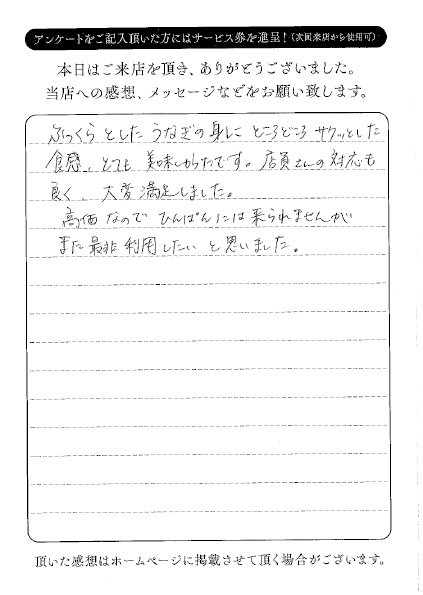 アンケートをご記入頂いた方にはサービス券を進呈!(次回来店から使用可)
本日はご来店を頂き、ありがとうございました。
当店への感想、メッセージなどをお願い致します。
ふっくらとしたうなぎの身にところどころサクッとした
食感、とても美味しかったです。店員さんの対応も
良く、大変満足しました。
高価なのでひんぱんには来られませんが
また最非利用したいと思いました。
頂いた感想はホームページに掲載させて頂く場合がございます。